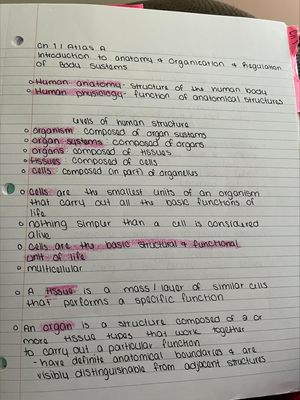 Ch 1 / Atlas A
Introduction to anatomy & Organization & Regulation
of Body Systems
Human anatomy- structure of the human body
Human physiology- function of anatomical structures
Levels of human structure
organism composed of organ systems
organ systems composed of organs
organs composed of tissues
tissues composed of cells
cells composed (in part) of organelles
cells are the smallest units of an organism
that carry out all the basic functions of
life
nothing simpler than a cell is considered
alive
cells are the basic structural & functional
unit of life
multicellular
A tissue is a mass / layer of similar cells
that performs a specific function
An organ is a structure composed of 2 or
more tissue types that work together
to carry out a particular function
- have definite anatomical boundaries & are
visibly distinguishable from adjacent structures